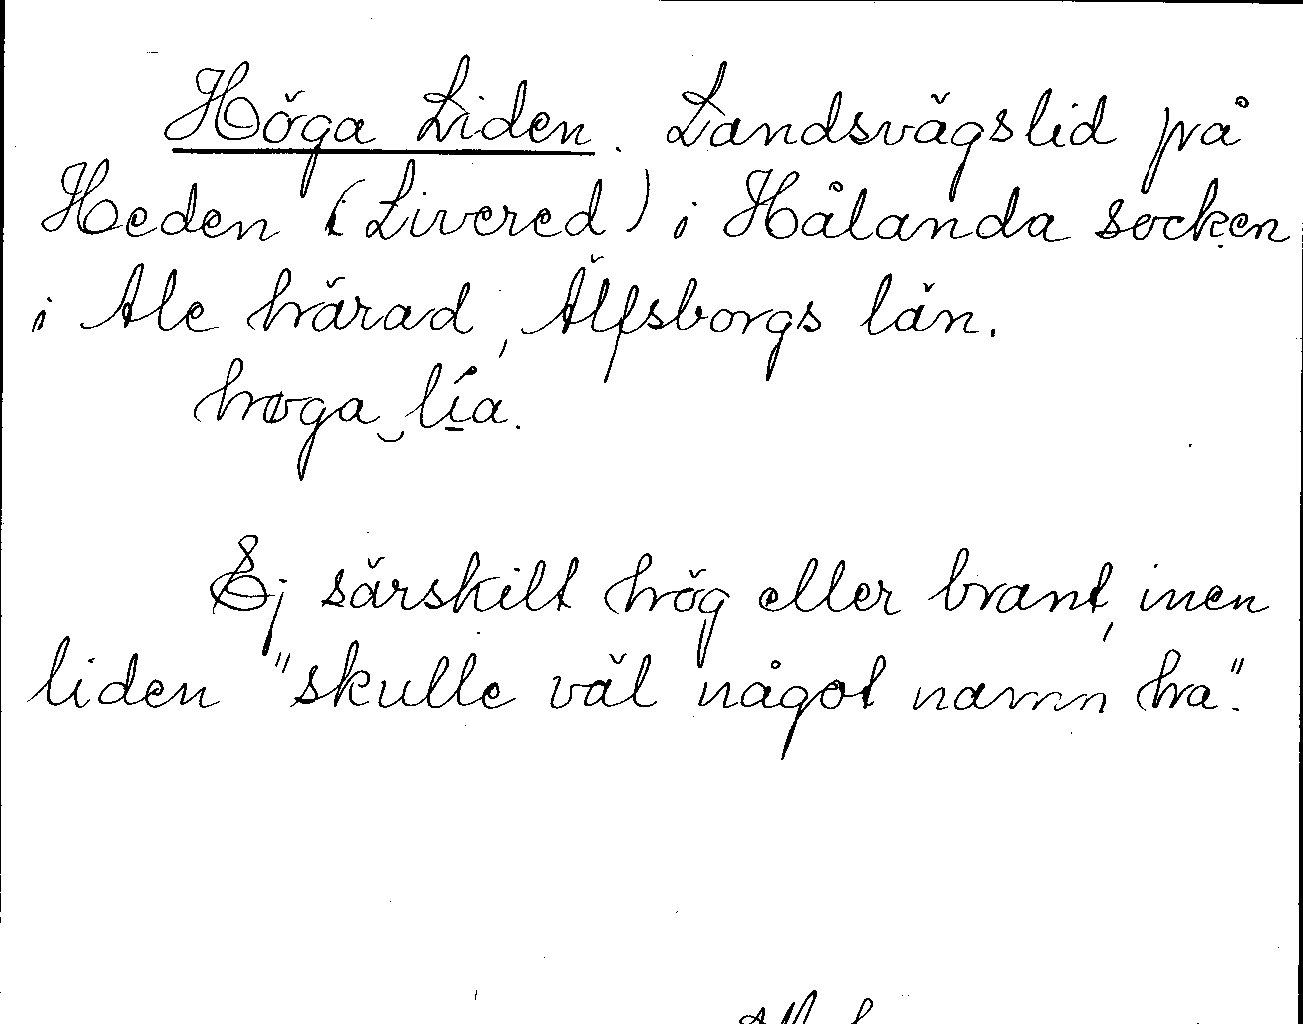 Höga Liden. Landsvägslid på
Heden (Livered) i Hålanda socken
i Ale härad, Älfsborgs län.
høga‿lía.
Ej särskilt hög eller brant, men
liden "skulle väl något namn ha".